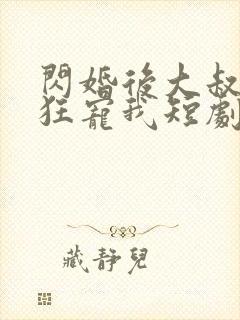 閃婚後大叔
狂寵我短劇
藏靜兒